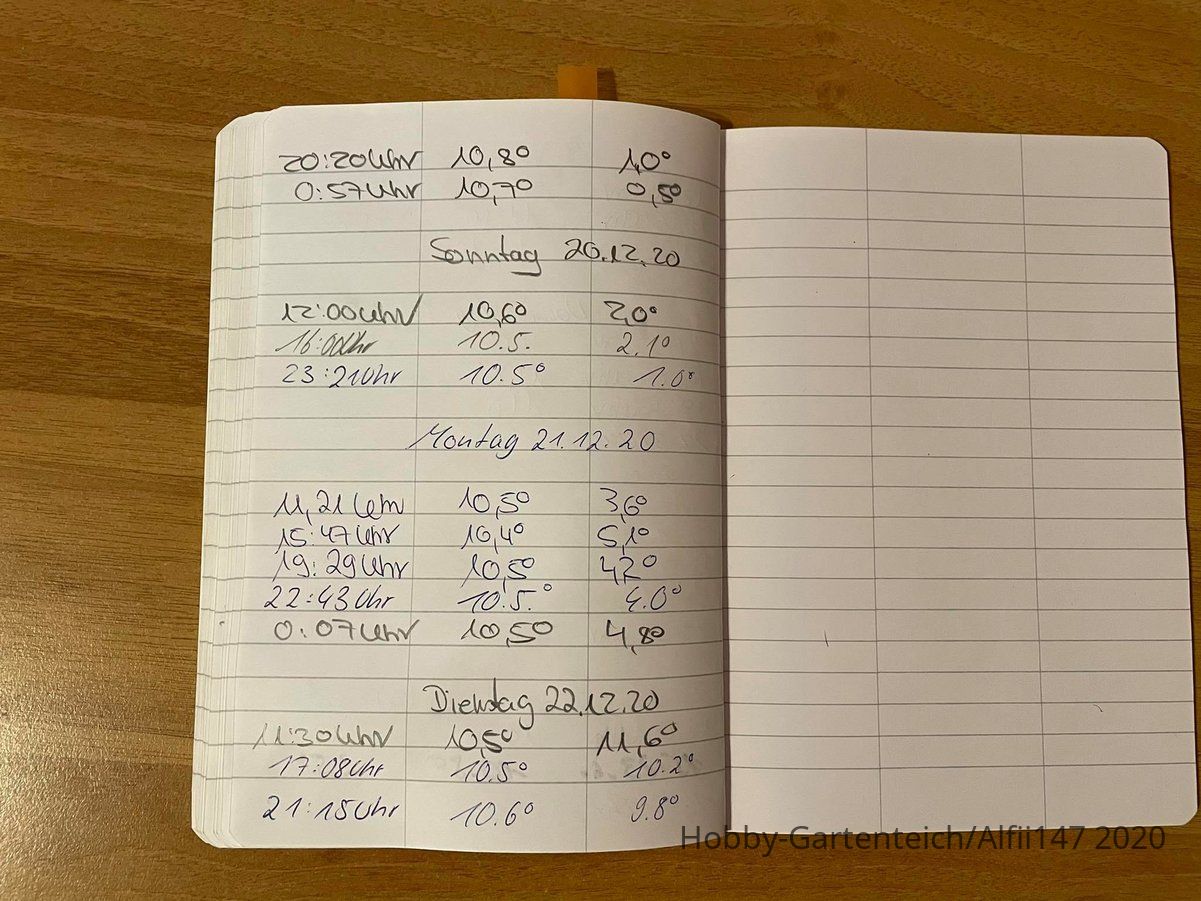 20:20 Uhr 10,8° 1,0°
0:57 Uhr 10,7° 0,5°
Sonntag 20.12.20
12:00 Uhr 10,6° 2,0°
16:00 Uhr 10.5. 2.1°
23:21 Uhr 10.5° 1.0°
Montag 21.12.20
11,21 Uhr 10,5° 3,6°
15:47 Uhr 10,4° 5,1°
19:29 Uhr 10,5° 4,2°
22:43 Uhr 10.5.° 4.0°
0:07 Uhr 10,5° 4,8°
Dienstag 22.12.20
11:30 Uhr 10,5° 11,6°
17:08 Uhr 10.5° 10.2°
21:15 Uhr 10.6° 9.8°
Hobby-Gartenteich/Alfii147 2020